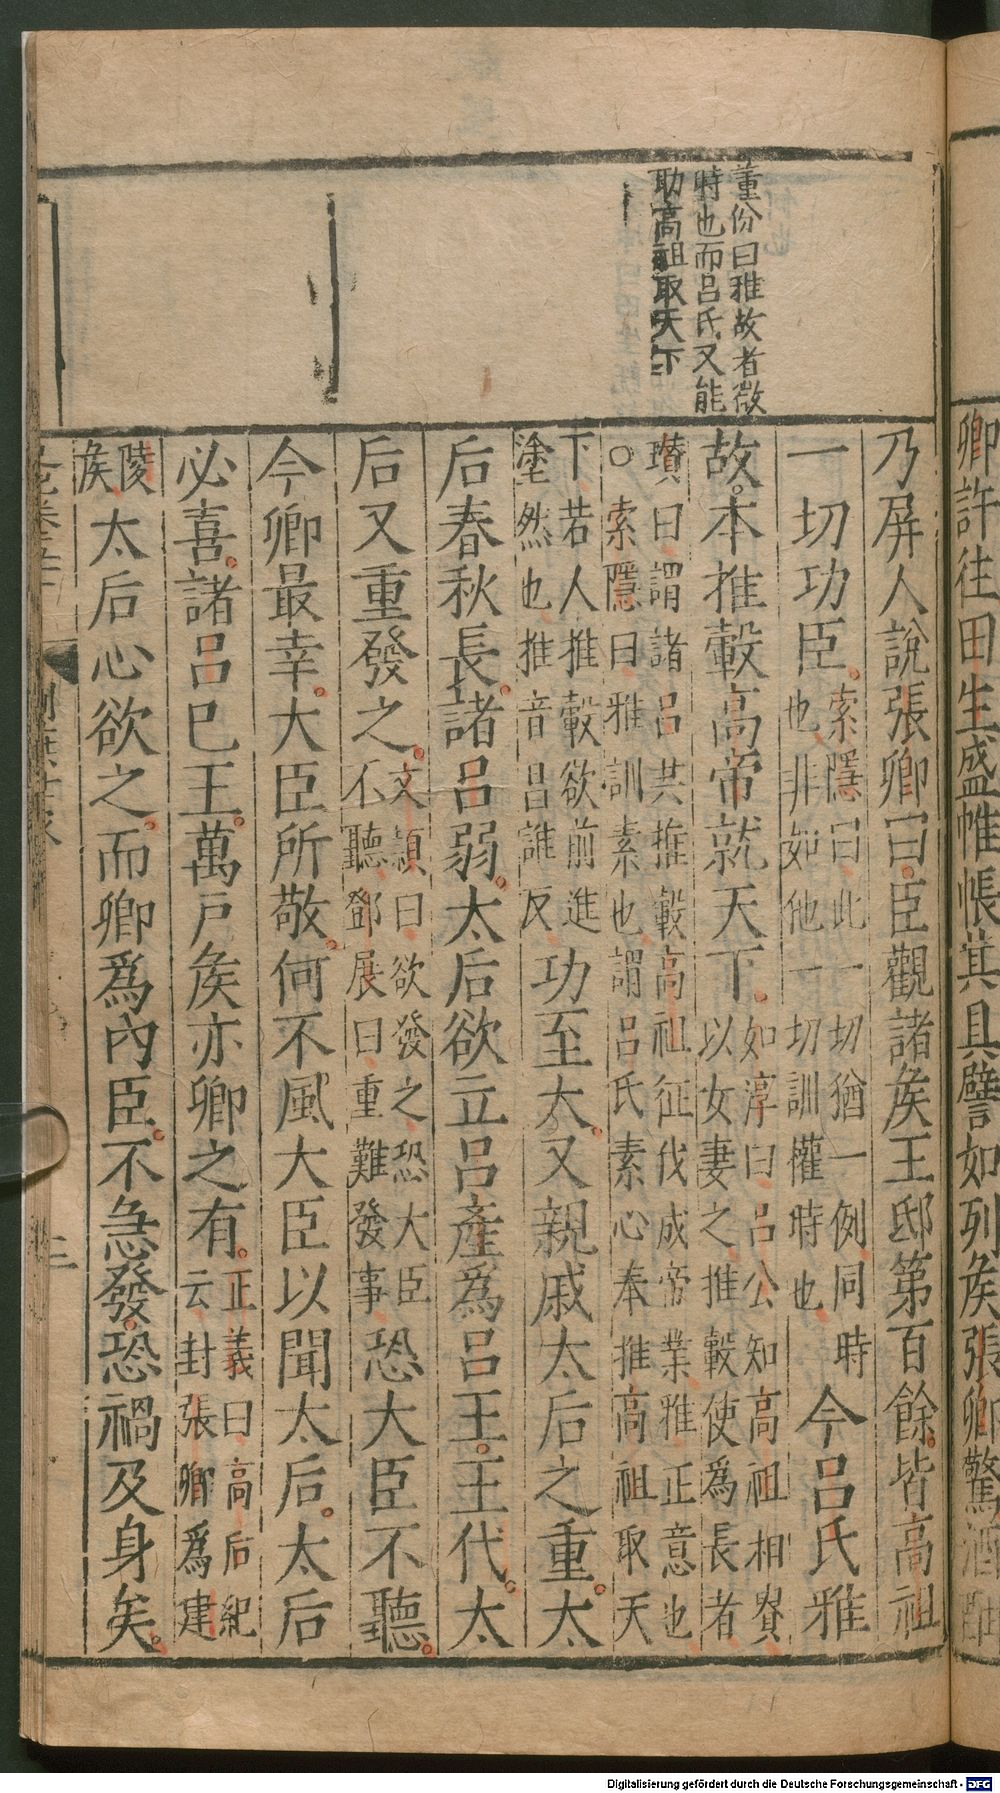 卿許往田生盛帷帳其具譬如列矦張卿驚酒酣
董份曰雅故者微
時也而吕氏又能
助高祖取天下
乃屏人說張卿曰臣觀諸矦王邸第百餘皆高祖
一切功臣索隱曰此一切猶一例同時也非如他一切訓權時也今吕氏雅
故本推轂高帝就天下如淳曰吕公知高祖相貴以女妻之推轂使爲長者
瓉曰謂諸吕共推轂高祖征伐成帝業雅正意也
○索隱曰雅訓素也謂吕氏素心奉推高祖取天
下若人推轂欲前進塗然也推音昌誰反功至大又親戚太后之重太
后春秋長諸吕弱太后欲立吕產爲吕王王代太
后又重發之文頴曰欲發之恐大臣不聽鄧展曰重難發事恐大臣不聽
今卿最幸大臣所敬何不風大臣以聞太后太后
必喜諸吕已王萬戶矦亦卿之有正義曰高后紀云封張卿爲建
陵矦太后心欲之而卿爲内臣不急發恐禍及身矣
三
Digitalisierung gefördert durch die Deutsche Forschungsgemeinschaft - DFG